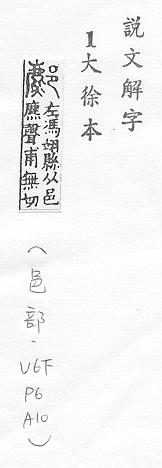 說文解字
1大徐本
左馮翊縣从邑
麃聲甫無切
(邑部.V6下
P6
A10)